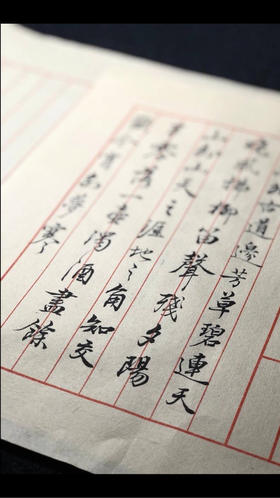 古道邊芳草碧連天
晚風拂柳笛聲殘夕陽
山外山天之涯地之角知交
半零落一壺濁酒盡餘
歡今宵別夢寒